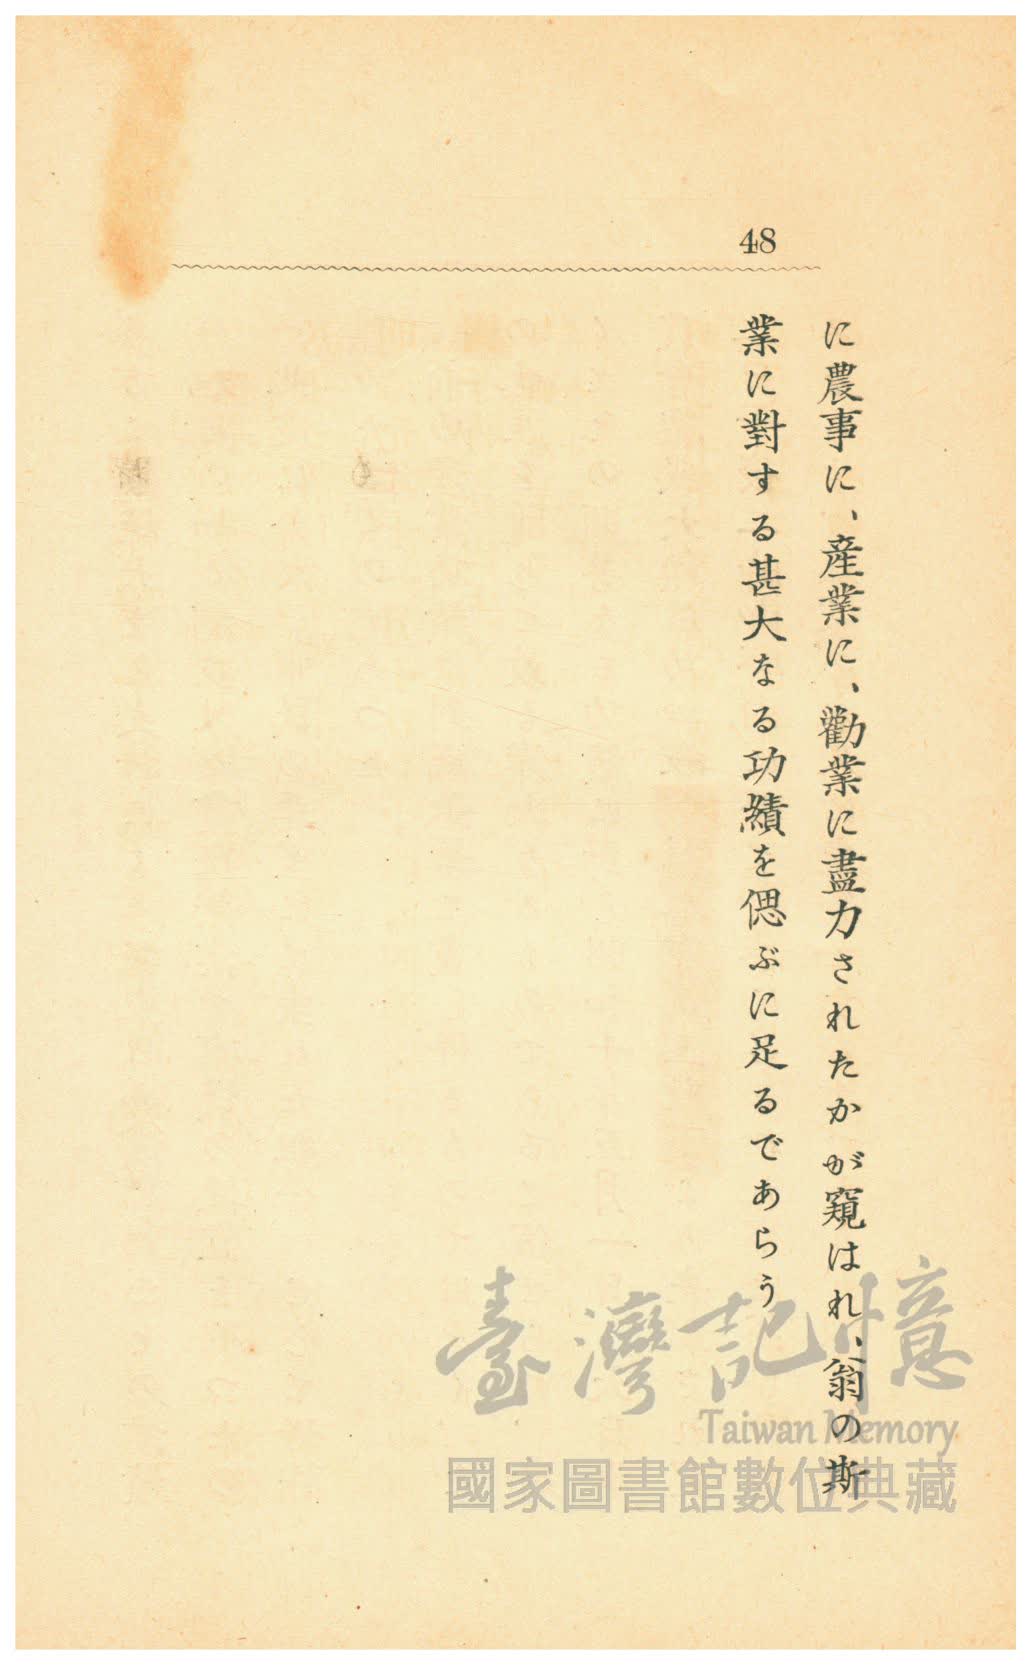 48
に農事に、産業に、勸業に盡力されたかが窺はれ、翁の斯
業に對する甚大なる功績を偲ぶに足るであらう
臺灣記憶
Taiwan Memory
國家圖書館數位典藏